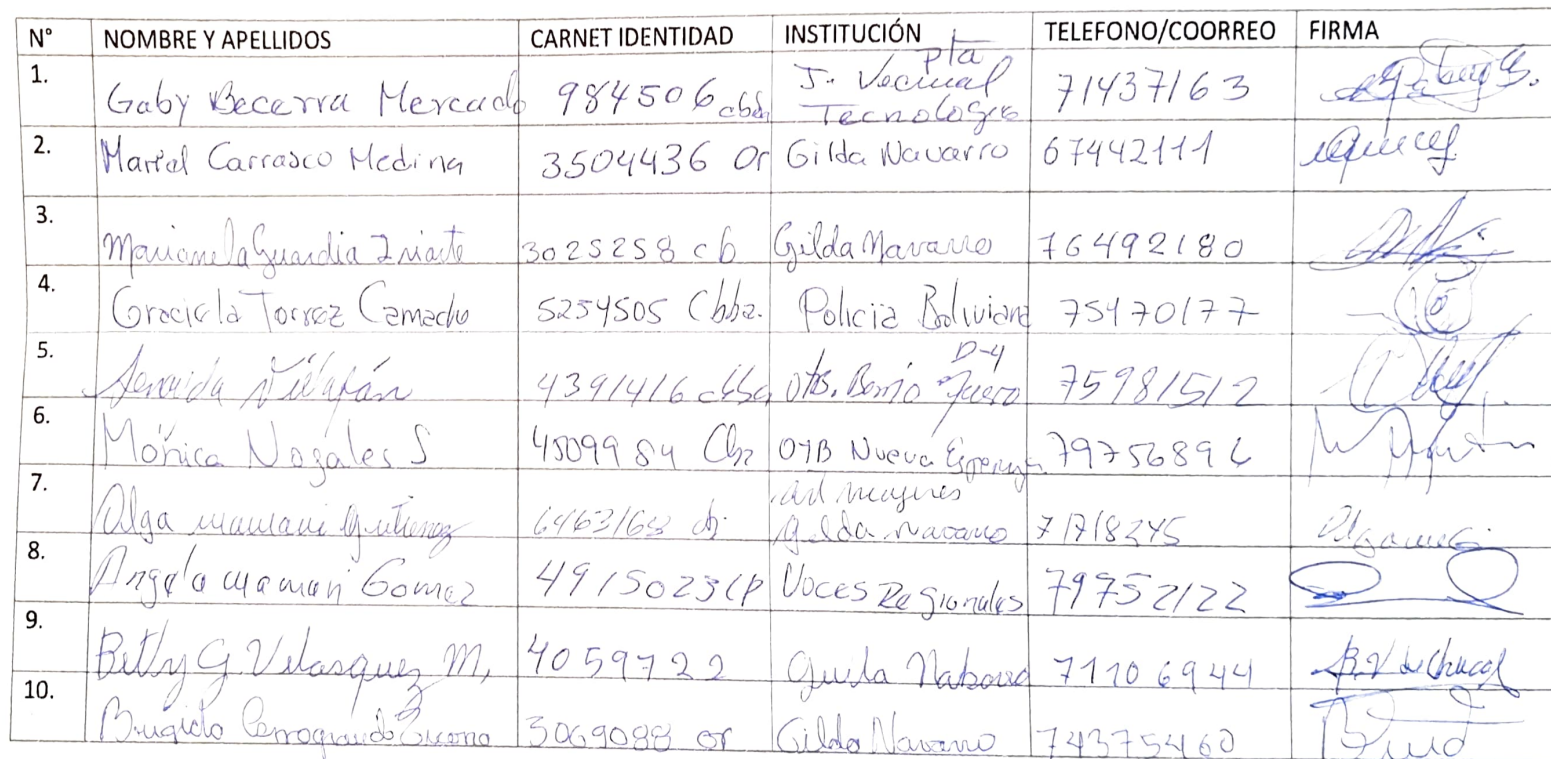 N° NOMBRE Y APELLIDOS CARNET IDENTIDAD INSTITUCIÓN TELEFONO/COORREO FIRMA
1. Gaby Becerra Mercado 984506 cbba Pta J. Vecinal Tecnologico 71437163
2. Mariel Carrasco Medina 3504436 Or Gilda Navarro 67442111
3. Marianela Guardia Iriarte 3025258 cb Gilda Navarro 76492180
4. Graciela Torrez Camacho 5254505 Cbba. Policia Boliviana 75470177
5. 4391416 cbba otb. Barrio D-4 75981512
6. Mónica Nogales S 4509984 Cba OTB Nueva Esperanza 79756896
7. Olga mamani Gutierrez 6463163 cb mujeres Gilda navarro 71718245
8. Angela mamani Gomez 4915023 LP Voces Regionales 79752122
9. Betty G. Velasquez M, 4059722 Guilda Nabarro 71106944
10. 3069088 or Gilda Navarro 74375460